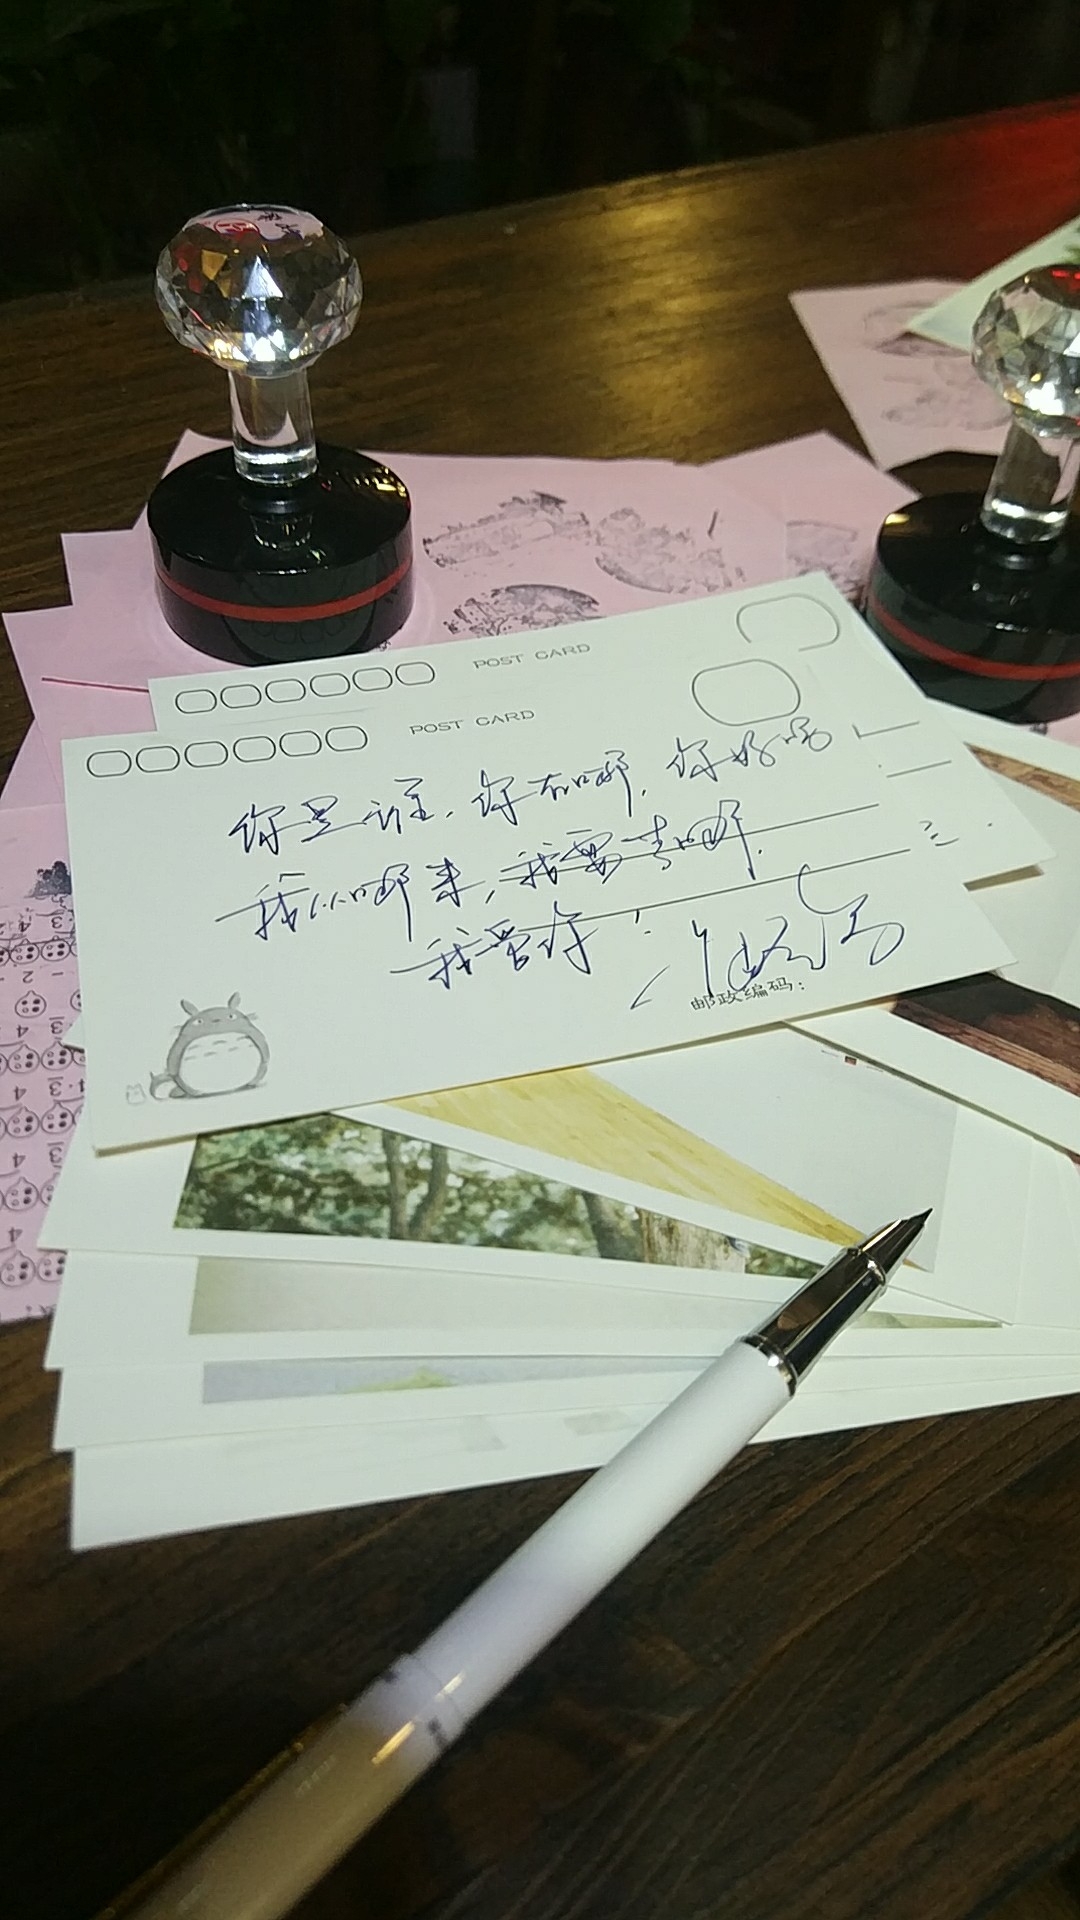 POST CARD
POST CARD
你是谁，你在哪，你好吗
我从哪来，我要去哪．
我爱你！
邮政编码：